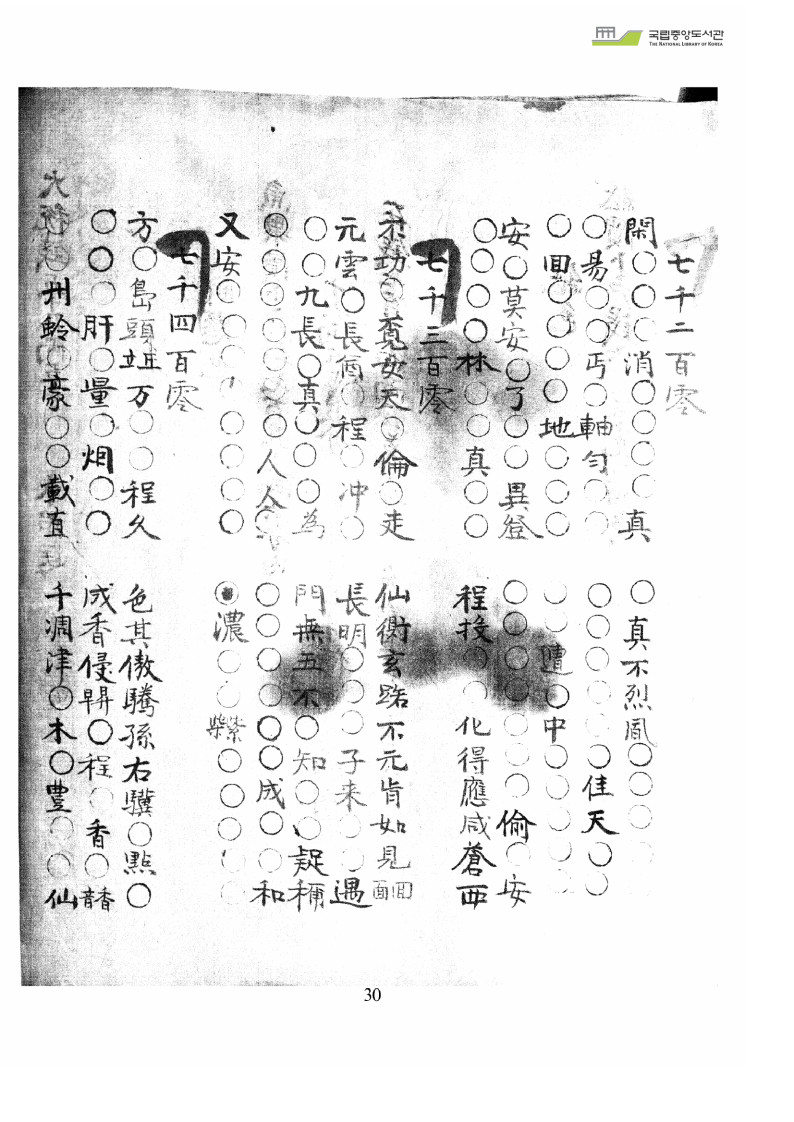 국립중앙도서관
THE NATIONAL LIBRARY OF KOREA
七千二百零
閑○○○消○○○○真 ○真不烈○○○○
○易○○丐○軸勻○○ ○○○○○○佳天○○
○回○○○○地○○○ ○○遭○中○○○○○
安○莫安○了○○異 ○○○○○○○偷○安
○○○○林○○真○○ 程投○○化得應咸蒼西
七千三百零
功○覔女天○倫○走 仙衡玄路不元肯如見面回
元雲○長○程○冲○ 長明○○○子来○○遇
○○九長○真○○○為 門無五不○知○○疑稱
○○○○○○○人人○ ○○○○○○成○○和
又安○○○○○○○○ ○濃○○紫○○○○○
七千四百零
方○島頭万○○程久 色其傲騰孫右驥○點○
○○○肝○量○烟○○ 成香侵○程○香○
州鈴○豪○○載直 千凋津○木○豊○○仙
30